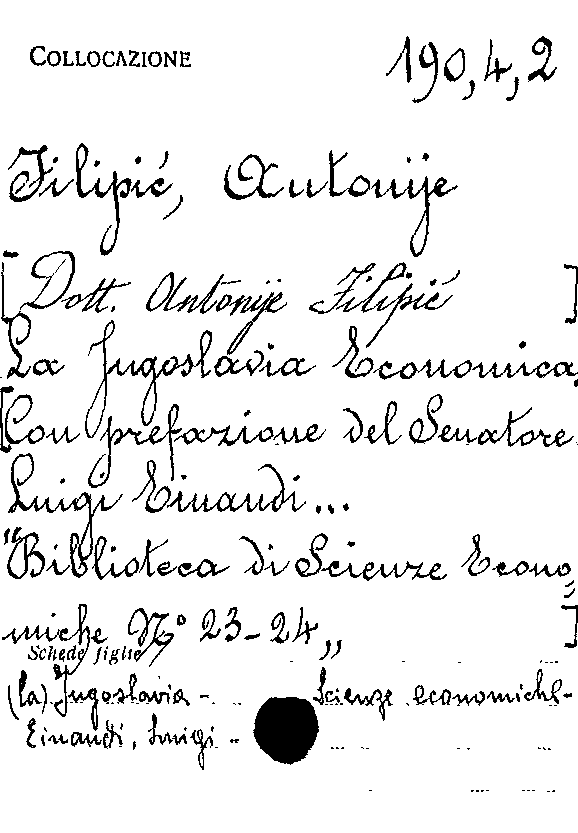 COLLOCAZIONE 190,4,2
Filipić, Antonije
[Dott. Antonije Filipić]
La Jugoslavia Economica,
[Con prefazione del Senatore
Luigi Einaudi...
"Biblioteca di Scienze Econo-
miche N.° 23-24„]
Schede figlie
(La) Jugoslavia - Scienze economiche-
Einaudi, Luigi -